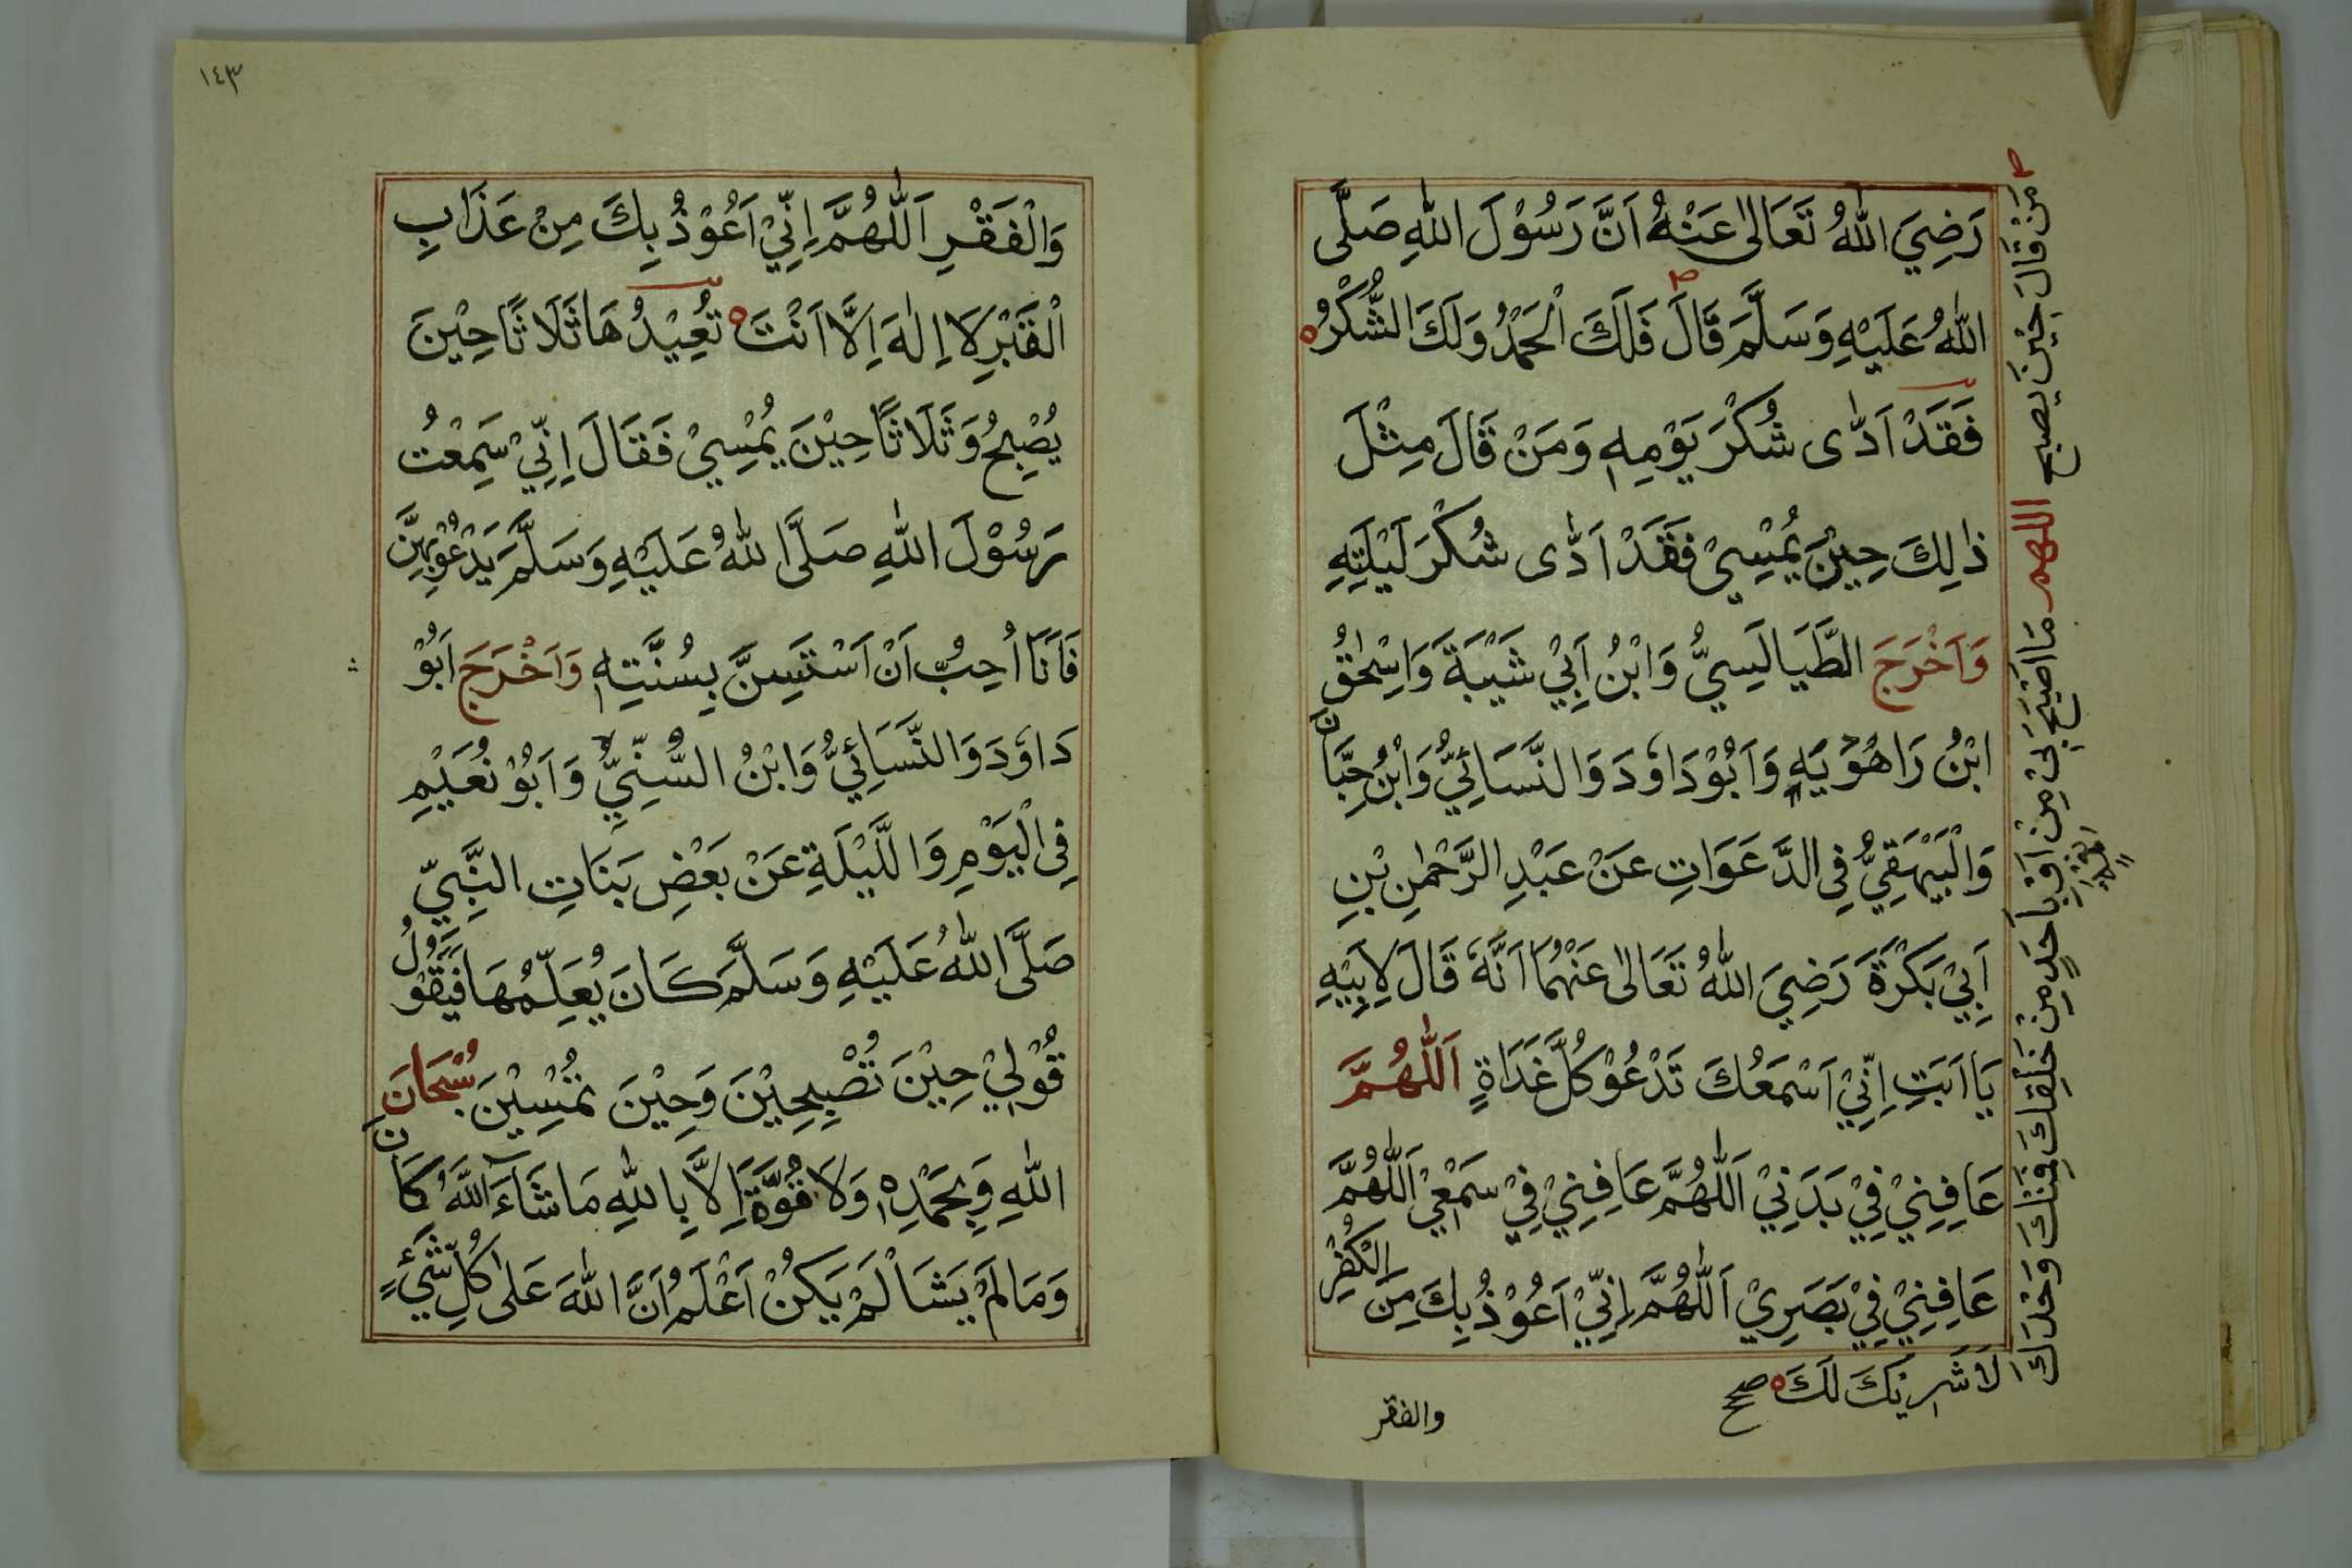 رَضِيَ اللّٰهُ تَعَالٰى عَنْهُ اَنَّ رَسُوْلَ اللّٰهِ صَلَّى
اللّٰهُ عَلَيْهِ وَسَلَّمَ قَالَ فَلَكَ الْحَمْدُ وَلَكَ الشُّكْرُ
فَقَدْ اَدّٰى شُكْرَ يَوْمِهٖ وَمَنْ قَالَ مِثْلَ
ذٰلِكَ حِيْنَ يُمْسِيْ فَقَدْ اَدّٰى شُكْرَ لَيْلَتِهِ
وَاَخْرَجَ الطَّيَالَسِيُّ وَابْنُ اَبِيْ شَيْبَةَ وَاِسْحٰقُ
ابْنُ رَاهُوْيَهِ وَاَبُوْدَاوٗدَ وَالنَّسَائِيُّ وَابْنُ حِبَّانَ
وَالْبَيْهَقِيُّ فِى الدَّعَوَاتِ عَنْ عَبْدِ الرَّحْمٰنِ بْنِ
اَبِيْ بَكْرَةَ رَضِيَ اللّٰهُ تَعَالٰى عَنْهُمَا اَنَّهٗ قَالَ لِاَبِيْهِ
يَا اَبَتِ اِنِّيْ اَسْمَعُكَ تَدْعُوْ كُلَّ غَدَاةٍ اَللّٰهُمَّ
عَافِنِيْ فِيْ بَدَنِيْ اَللّٰهُمَّ عَافِنِيْ فِيْ سَمْعِيْ اَللّٰهُمَّ
عَافِنِيْ فِيْ بَصَرِيْ اَللّٰهُمَّ اِنِّيْ اَعُوْذُ بِكَ مِنَ الْكُفْرِ
والفقر
مَنْ قَالَ حِيْنَ يصبح اللهم مَا اَصْبَحَ بِيْ مِنْ نِعْمَةٍ اَوْ بِاَحَدٍ مِنْ خَلْقِكَ فَمِنْكَ وَحْدَكَ
لَا شَرِيْكَ لَكَ صح
١٤٣
وَالْفَقْرِ اَللّٰهُمَّ اِنِّيْ اَعُوْذُ بِكَ مِنْ عَذَابِ
الْقَبْرِ لَا اِلٰهَ اِلَّا اَنْتَ تُعِيْدُهَا ثَلَاثًا حِيْنَ
يُصْبِحُ وَثَلَاثًا حِيْنَ يُمْسِيْ فَقَالَ اِنِّيْ سَمِعْتُ
رَسُوْلَ اللّٰهِ صَلَّى اللّٰهُ عَلَيْهِ وَسَلَّمَ يَدْعُوْ بِهِنَّ
فَاَنَا اُحِبُّ اَنْ اَسْتَسِنَّ بِسُنَّتِهٖ وَاَخْرَجَ اَبُوْ
دَاوٗدَ وَالنَّسَائِيُّ وَابْنُ السُّنِّيِّ وَاَبُوْ نُعَيْمِ
فِى الْيَوْمِ وَاللَّيْلَةِ عَنْ بَعْضِ بَنَاتِ النَّبِيِّ
صَلَّى اللّٰهُ عَلَيْهِ وَسَلَّمَ كَانَ يُعَلِّمُهَا فَيَقُوْلُ
قُوْلِيْ حِيْنَ تُصْبِحِيْنَ وَحِيْنَ تُمْسِيْنَ سُبْحَانَ
اللّٰهِ وَبِحَمْدِهٖ وَلَا قُوَّةَ اِلَّا بِاللّٰهِ مَا شَآءَ اللّٰهُ كَانَ
وَمَا لَمْ يَشَأْ لَمْ يَكُنْ اَعْلَمُ اَنَّ اللّٰهَ عَلٰى كُلِّ شَيْءٍ